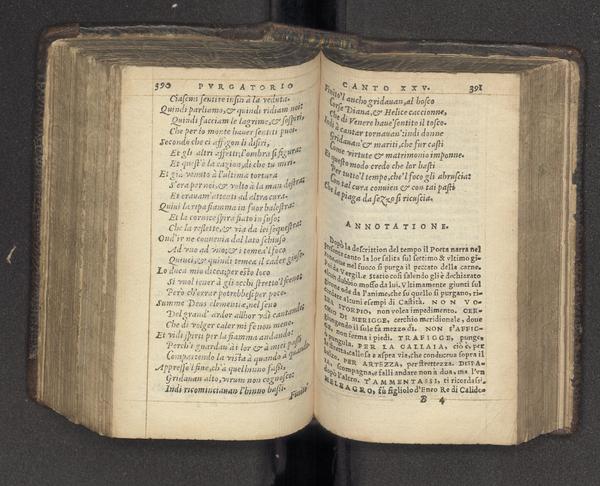 390 PVRGATORIO
Ciascun sentire insin à la veduta.
Quindi parliamo, & quindi ridiam noi:
Quindi facciam le lagrime, & sospiri,
Che per lo monte hauer sentiti puoi.
Secondo che ci affigon li disiri,
Et gli altri affetti; l'ombra si figura:
Et quest'è la cagion, di che tu miri.
Et già venuto à l'ultima tortura
S'era per noi, & volto à la man destra:
Et erauam'attenti ad altra cura.
Quiui la ripa fiamma in fuor balestra:
Et la cornice spira fiato in suso:
Che la reflette, & via da lei sequestra:
Ond'ir ne conuenia dal lato schiuso
Ad vno ad vno; & i temea'l foco
Quinci; & quindi temea il cader giuso.
Lo duca mio dicea; per esto loco
Si vuol tener à gli occhi stretto'l freno:
Però ch'errar potrebbesi per poco.
Summe Deus clementiæ, nel seno
Del grand'ardor allhor vdi cantando;
Che di volger caler mi fe non meno.
Et vidi spirti per la fiamma andando:
Perch'i guardau'à i lor & à miei passi
Compartendo la vista à quando à quando
Appresso'l fine, ch'à quell'hinno fassi,
Gridauan alto, virum non cognosco:
Indi ricominciauan l'hinno bassi.
Finito
CANTO XXV. 391
Finito'l ancho gridauan, al bosco
Corse Diana, & Helice caccionne,
Che di Venere haue' sentito il tosco.
Indi à cantar tornauan: indi donne
Gridauan' & mariti, che fur casti
Come virtute & matrimonio imponne.
Et questo modo credo che lor basti
Per tutto'l tempo, che'l foco gli abruscia:
Con tal cura conuien & con tai pasti
Che la piaga da sezzo si ricuscia.
ANNOTATIONE.
Dopò la descrittion del tempo il Poeta narra nel
presente canto la lor salita sul settimo & vltimo gi-
rone, oue nel fuoco si purga il peccato della carne.
Poi da Vergil. e Statio così salendo gli è dechiarato
alcun dubbio mosso da lui. Vltimamente giunti sul
girone ode da l'anime, che su quello si purgano, ri-
cordare alcuni esempi di Castità. NON VO-
LEA STORPIO, non volea impedimento. CER-
CHIO DI MERIGGE, cerchio meridionale, doue
giungendo il sole fa mezzo dì. NON S'AFFIG-
GE, non ferma i piedi. TRAFIGGE, punge,
PER LA CALLAIA, ciò è, per
calle sa aspra via, che conducena sopra il
PER ARTEZZA, per strettezza. DISPA-
IA, scompagna, e falli andare non à dua, ma l'vn
dopò l'altro. T'AMMENTASSI, ti ricordassi.
MELEAGRO, fù figliolo d'Eneo Re di Calido-
B 4